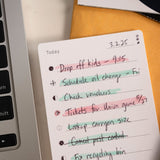 Today 3.2.25
Drop off kids - 9:05
Schedule oil change - Fri
Check vouchers
Tickets for Union game
Lookup carryon size
Cancel pest control
Fix recycling bin